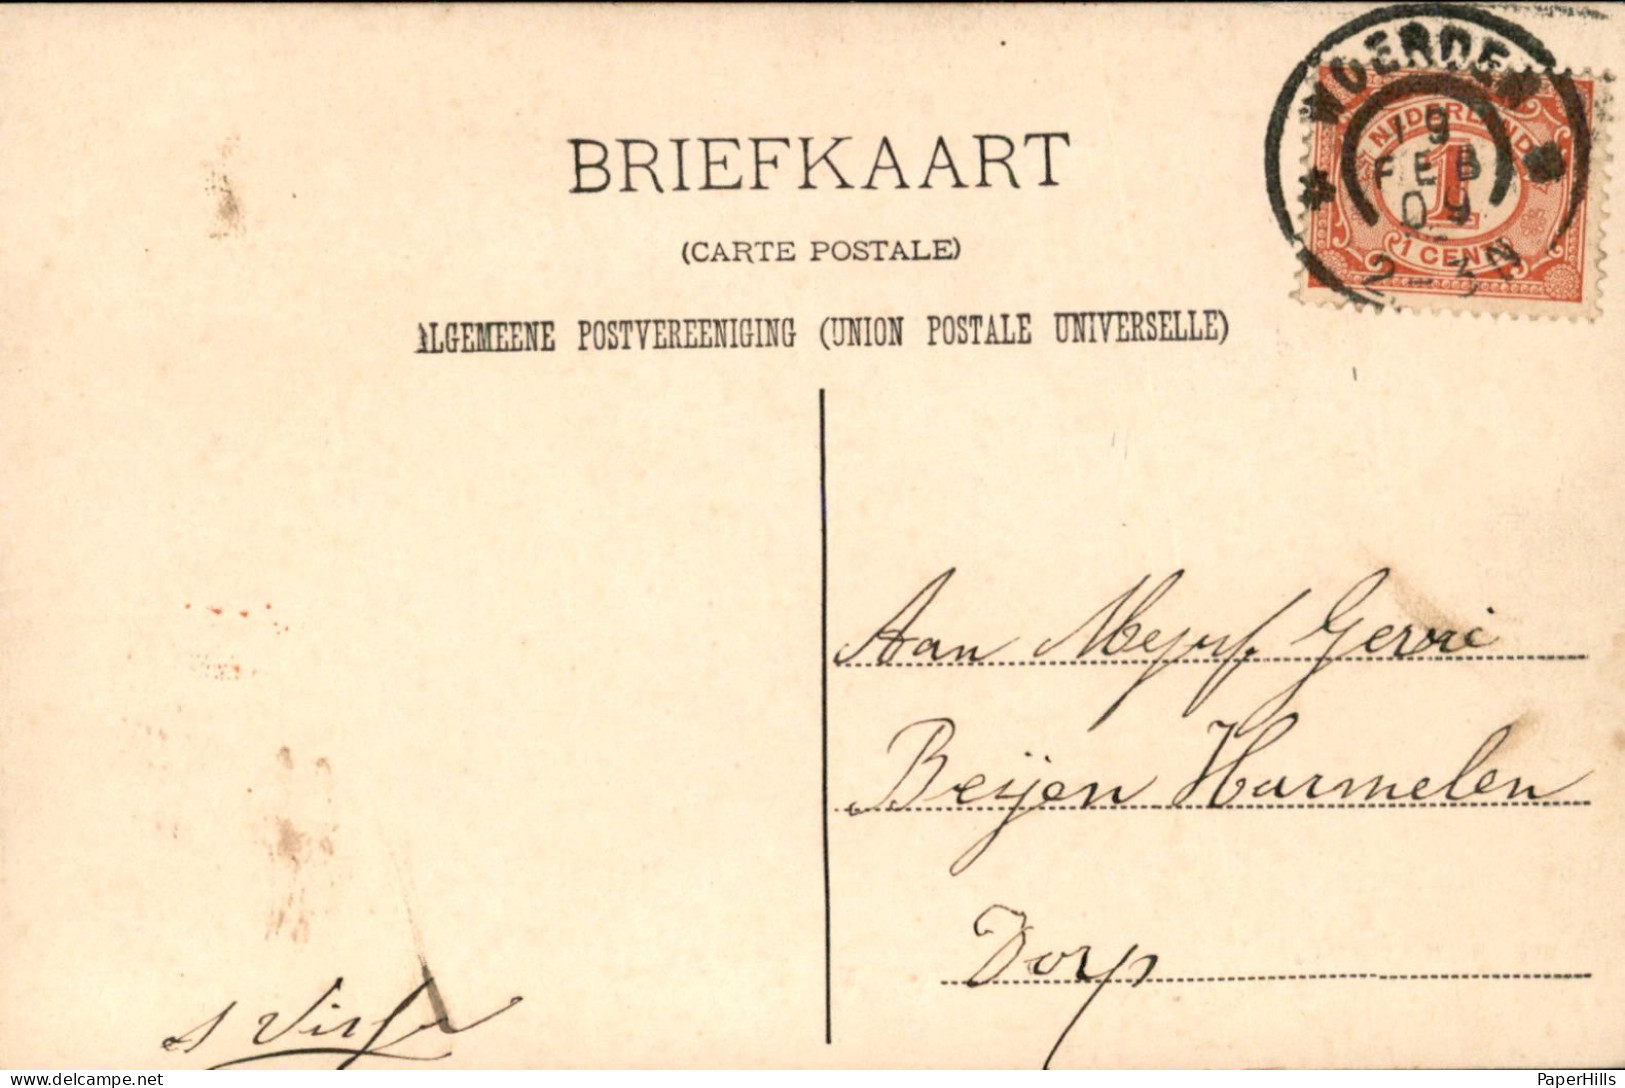 BRIEFKAART
(CARTE POSTALE)
ALGEMEENE POSTVEREENIGING (UNION POSTALE UNIVERSELLE)
WOERDEN
19
FEB
09
2-3N
NEDERLAND
1
1 CENT
Aan Mejuf. Gerri
Beijen Harmelen
Dorp
delcampe.net
PaperHills